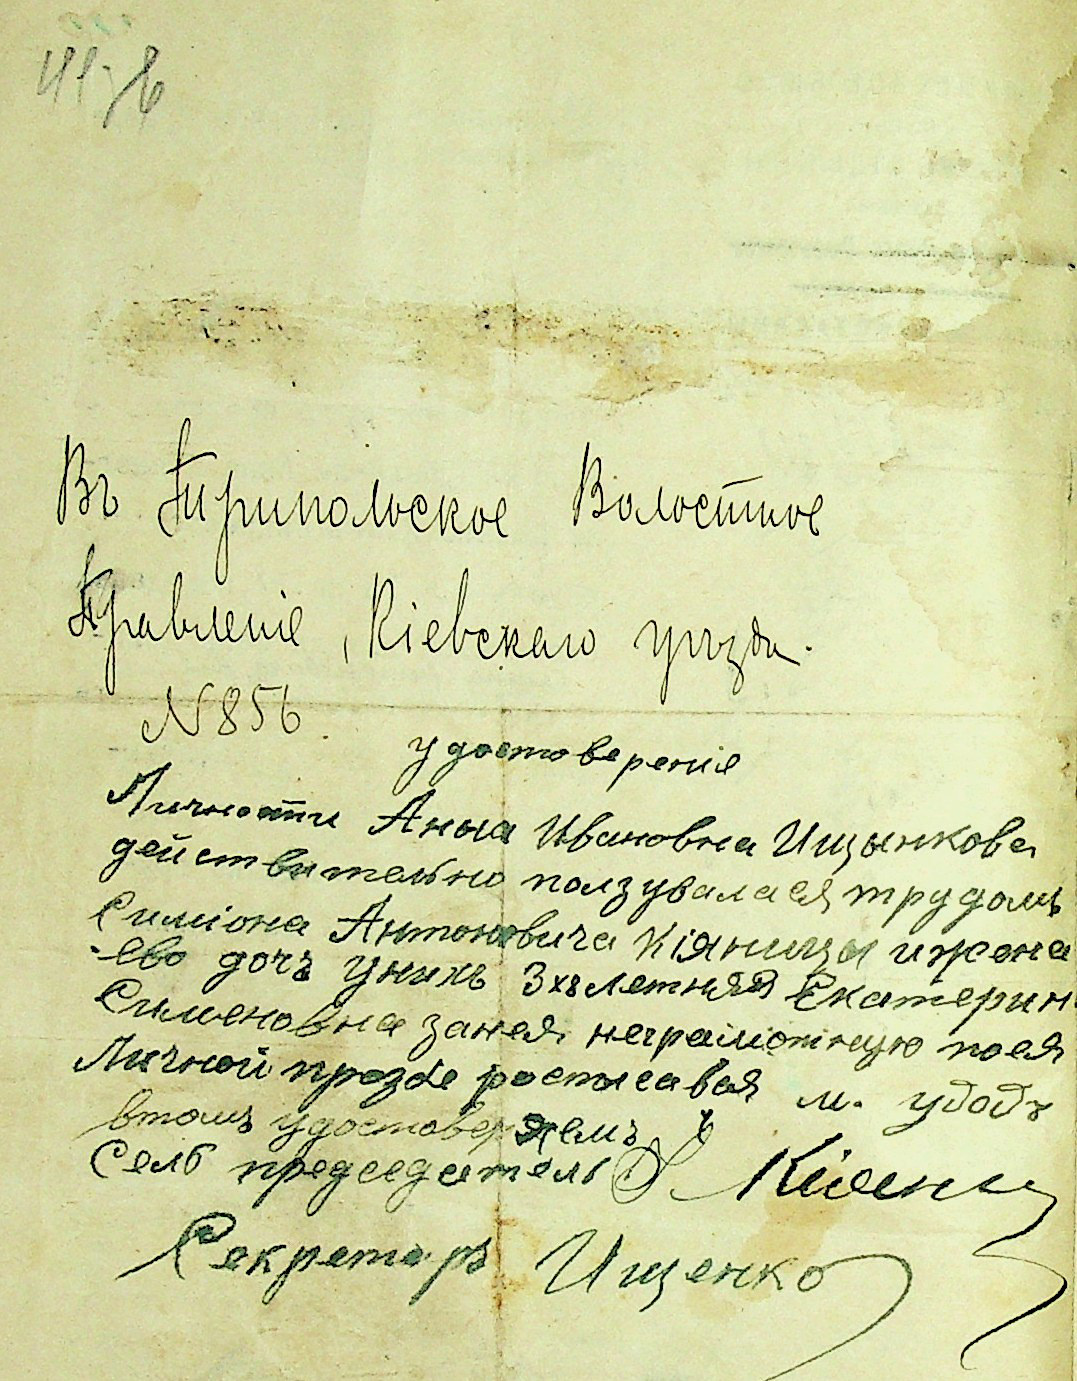 Въ Трипольское Волостное
Правленіе, Кіевскаго уѣзда.
N 856.
удостоверенія
Личности Анна Ивановна Ищынкова
действительноползуваласЯ трудомъ
Симіона Антоновича Кіяницы ижена
ево дочъ унихъ 3хълетняя Екатерин
Сименовна занея неграмотную поея
Личной прозбе ростисавоя м. удодъ
втомъ удостоверяемъ
Селб председатель Кіяниц
Секретаръ Ищенко